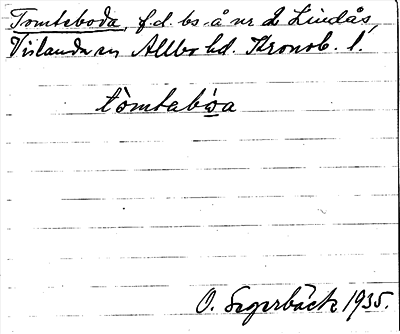 Tomteboda, f.d. bs. å nr 2 Lindås,
Vislanda sn Allbo hd. Kronob. l.
tòmtabo̲a
O. Segerbäck 1935.